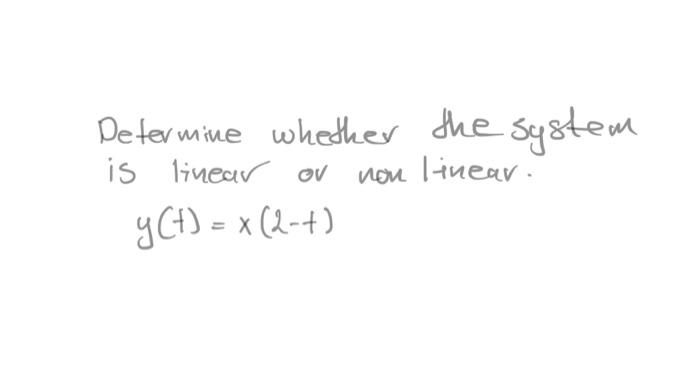 Determine whether the system
is linear or non linear.
y(t) = x(2-t)